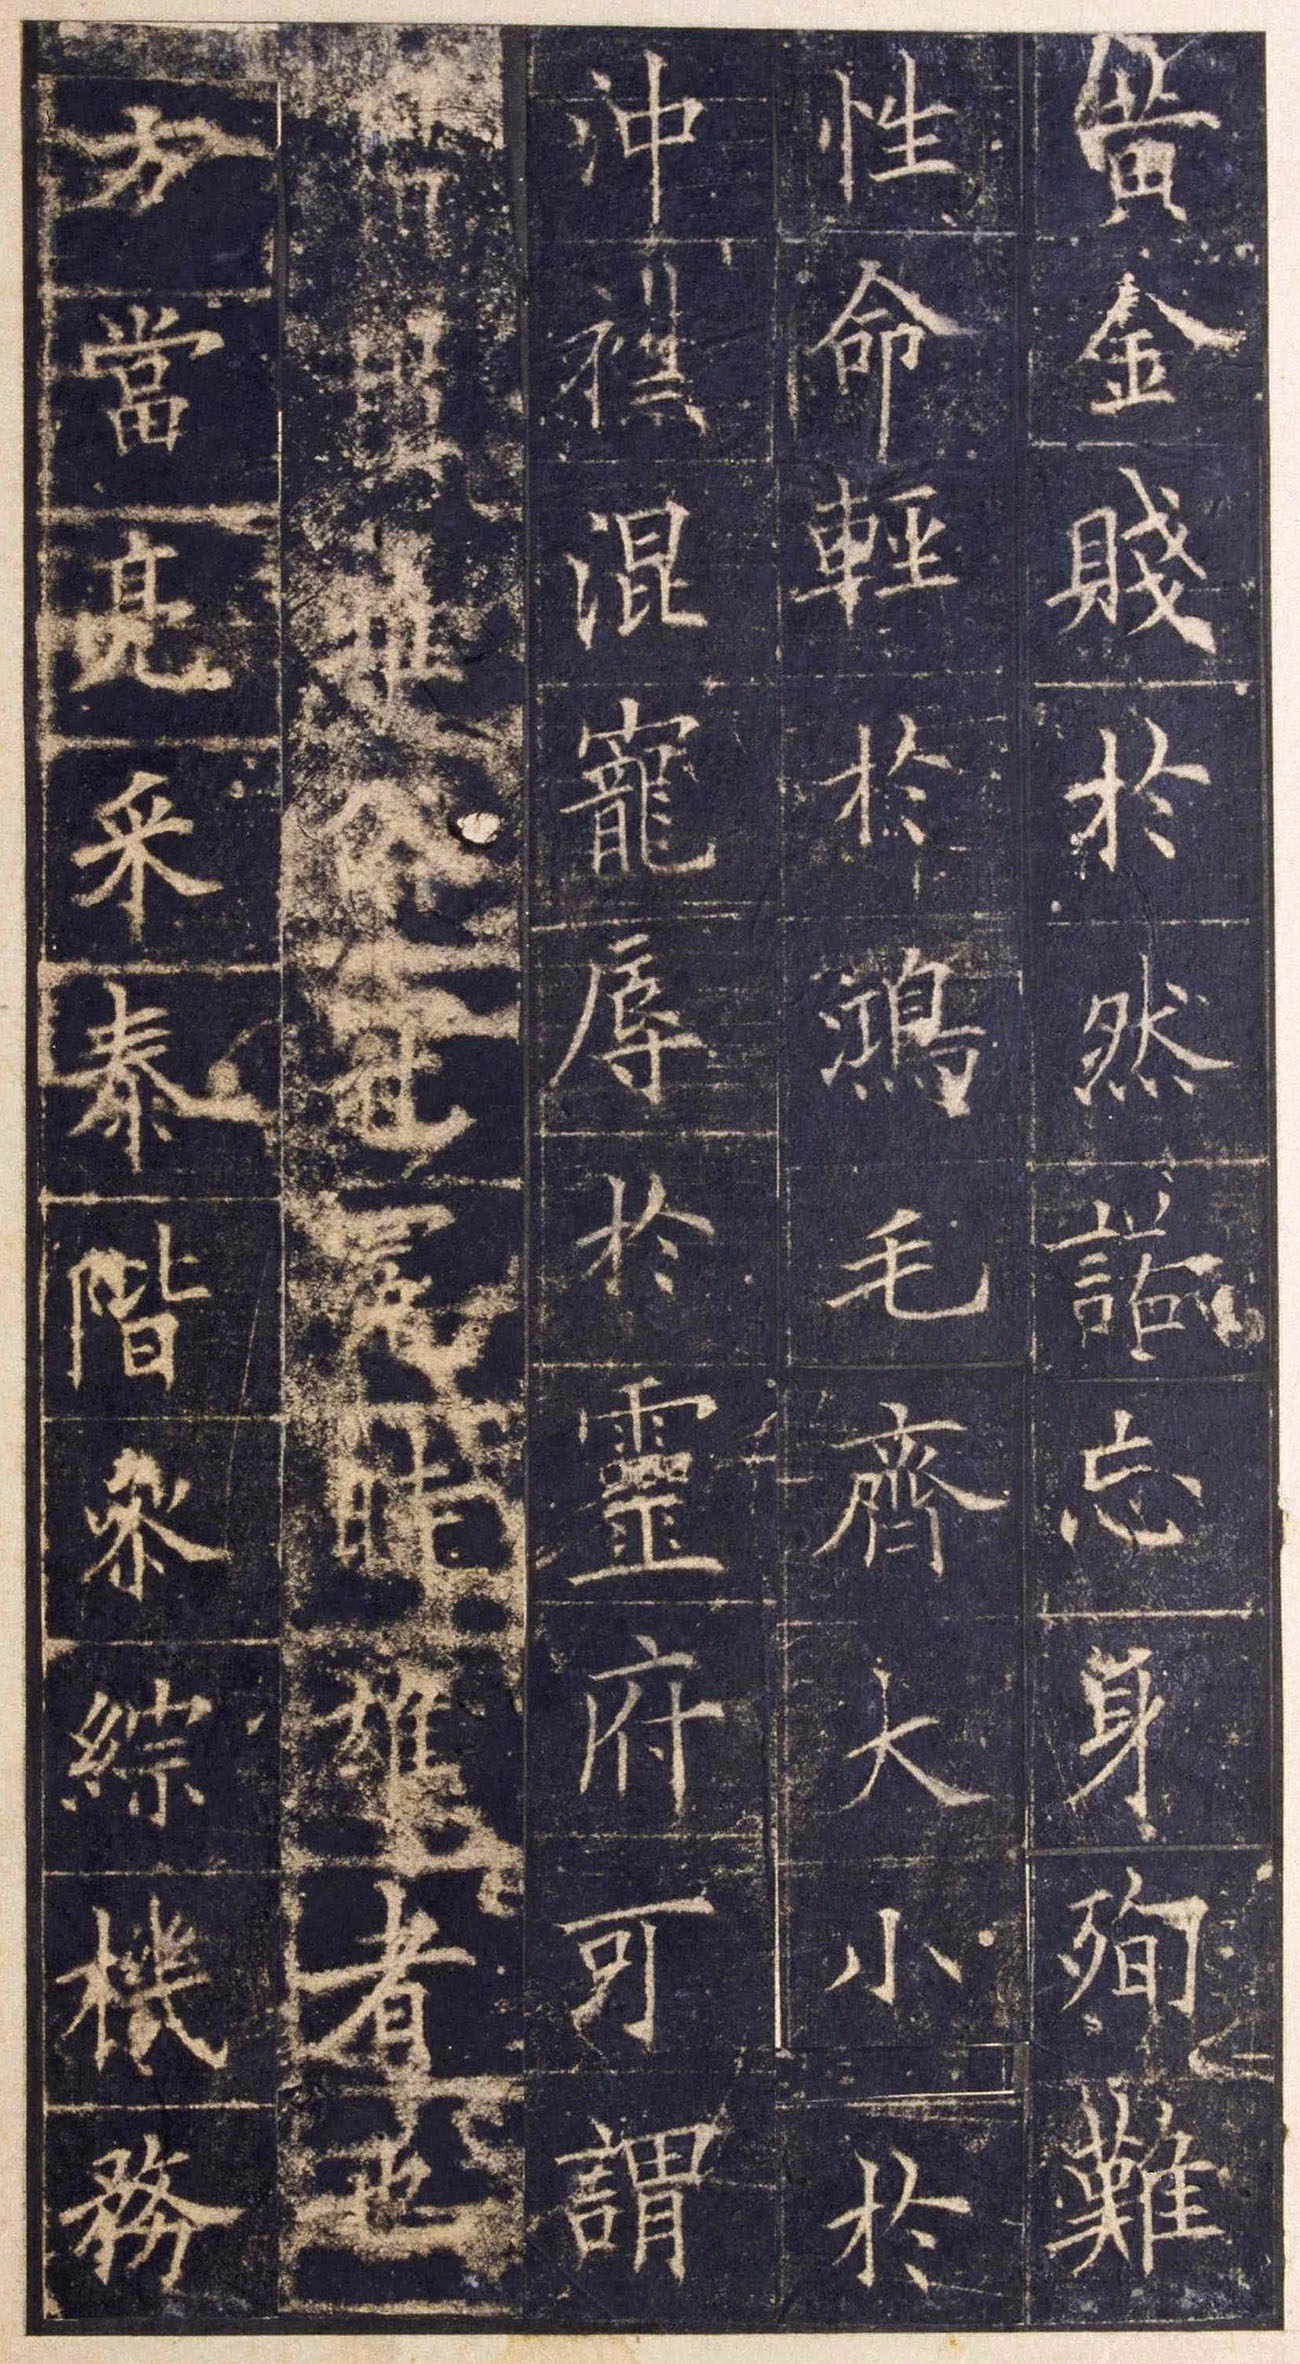 黃金賤於然諾忘身殉難
性命輕於鴻毛齊大小於
沖襟混寵辱於靈府可謂
時雄者也
方當亮采泰階參綜機務